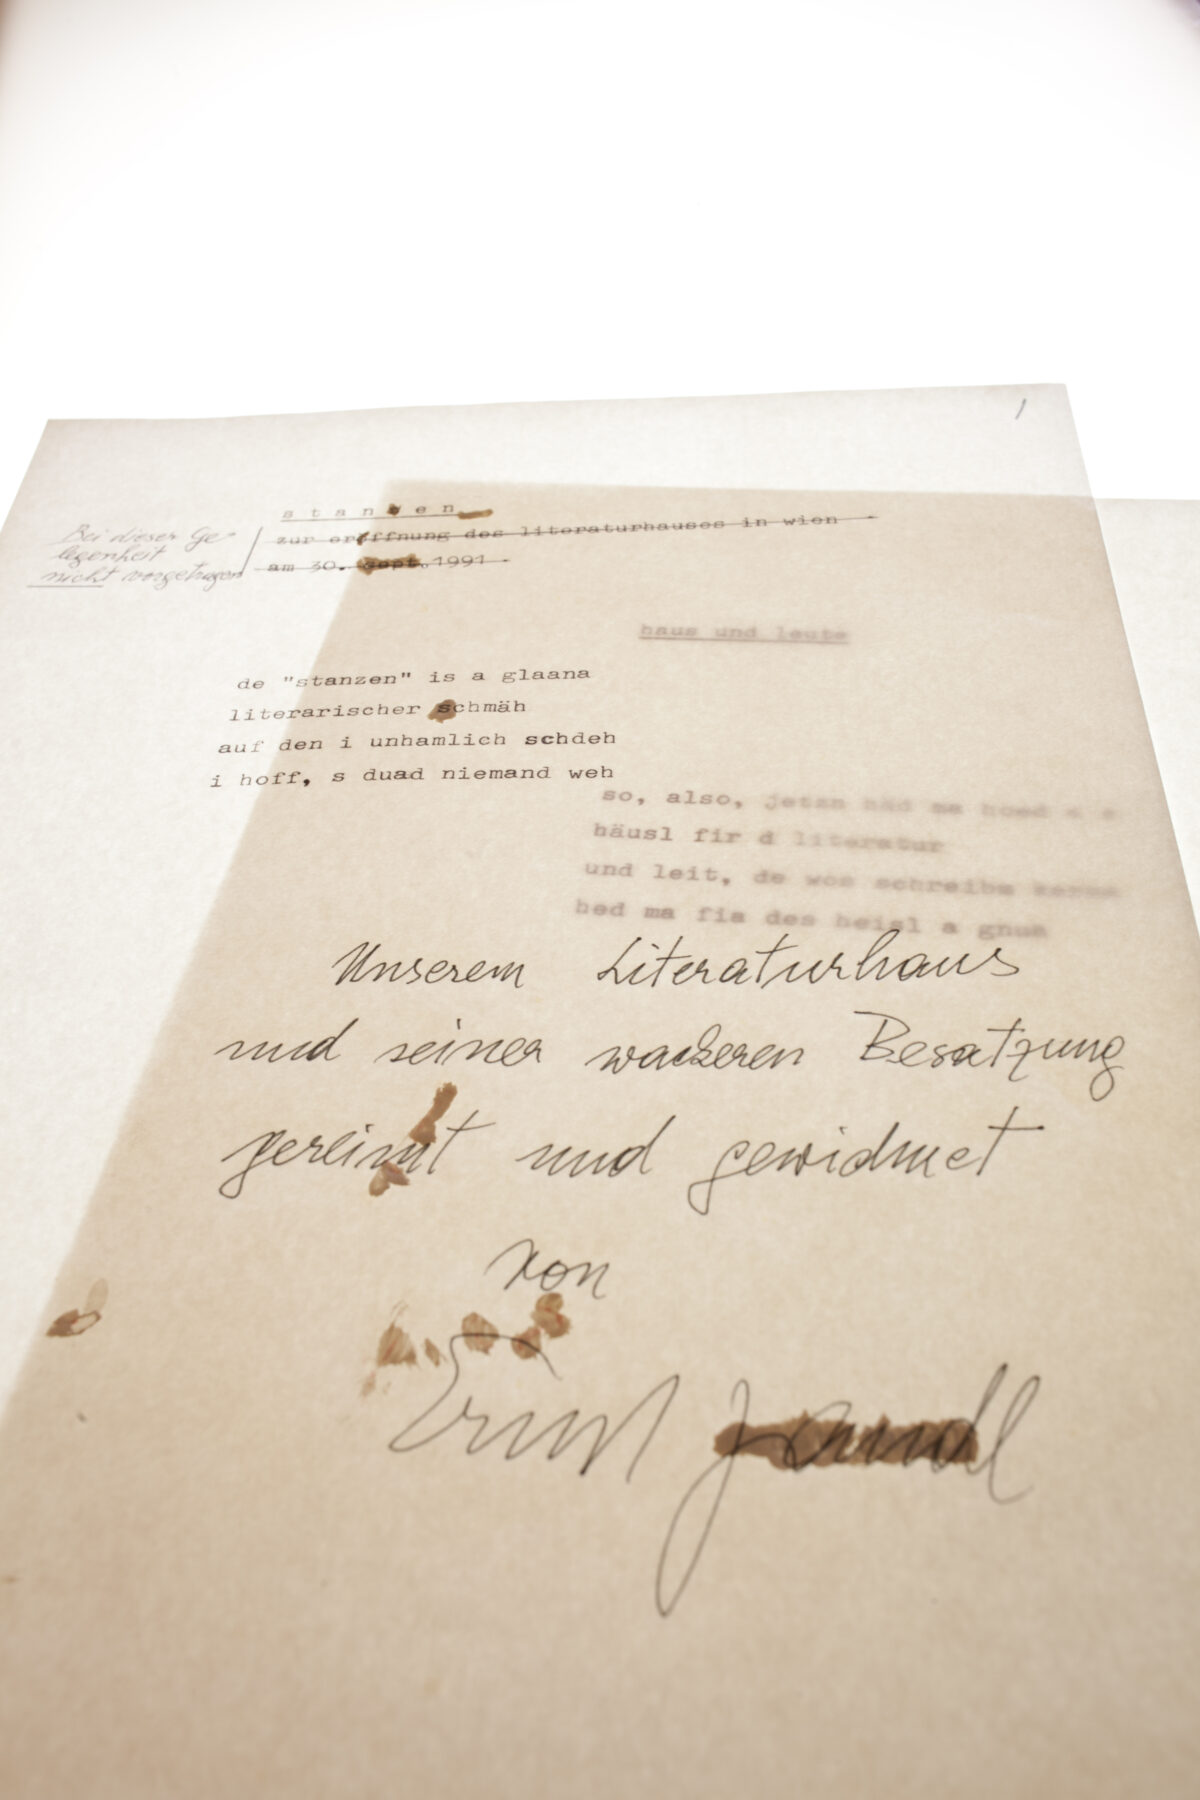 /
s t a n z e n
Bei dieser Ge-
legenheit
nicht vorgetragen
zur eröffnung des literaturhauses in wien
am 30. sept. 1991
haus und leute
de "stanzen" is a glaana
literarischer schmäh
auf den i unhamlich schdeh
i hoff, s duad niemand weh
so, also, jetzn häd ma
häusl fir d literatur
und leit, de wos schreibm
hed ma fia des heisl a gnua
Unserem Literaturhaus
und seiner wackeren Besatzung
gereimt und gewidmet
von
Ernst Jandl